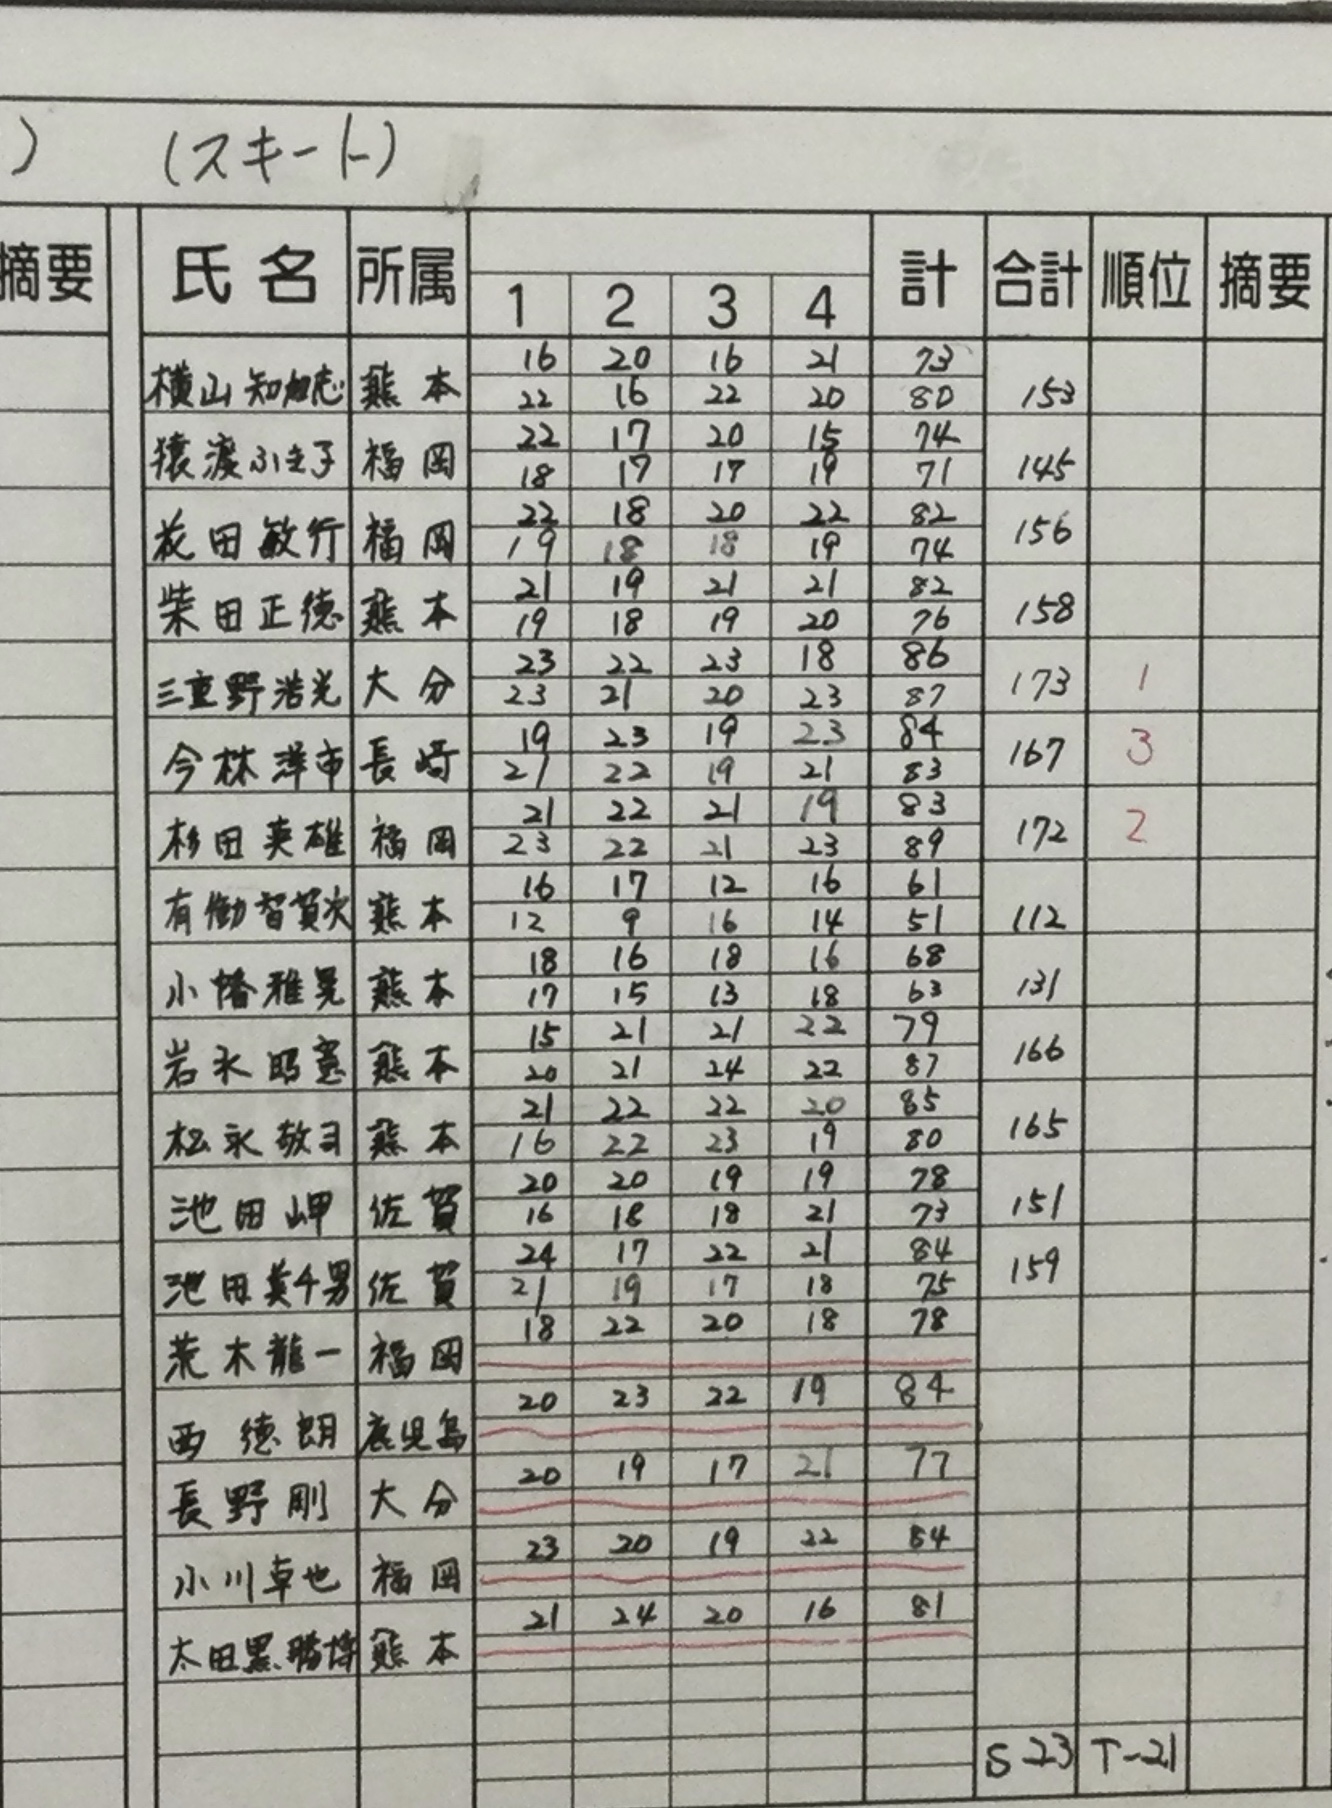 ) (スキート)
摘要 氏名 所属 1 2 3 4 計 合計 順位 摘要
16 20 16 21 73
横山知加志 熊本 22 16 22 20 80 153
22 17 20 15 74
猿渡ふき子 福岡 18 17 17 19 71 145
22 18 20 22 82
花田敏行 福岡 19 18 18 19 74 156
21 19 21 21 82
柴田正徳 熊本 19 18 19 20 76 158
23 22 23 18 86
三重野浩光 大分 23 21 20 23 87 173 1
19 23 19 23 84
今林洋市 長崎 21 22 19 21 83 167 3
21 22 21 19 83
杉田英雄 福岡 23 22 21 23 89 172 2
16 17 12 16 61
有働智賀次 熊本 12 9 16 14 51 112
18 16 18 16 68
小幡雅晃 熊本 17 15 13 18 63 131
15 21 21 22 79
岩永昭憲 熊本 20 21 24 22 87 166
21 22 22 20 85
松永敬司 熊本 16 22 23 19 80 165
20 20 19 19 78
池田岬 佐賀 16 18 18 21 73 151
24 17 22 21 84
池田英千男 佐賀 21 19 17 18 75 159
18 22 20 18 78
荒木龍一 福岡
20 23 22 19 84
西徳朗 鹿児島
20 19 17 21 77
長野剛 大分
23 20 19 22 84
小川卓也 福岡
21 24 20 16 81
太田黒勝博 熊本
S 23 T-21